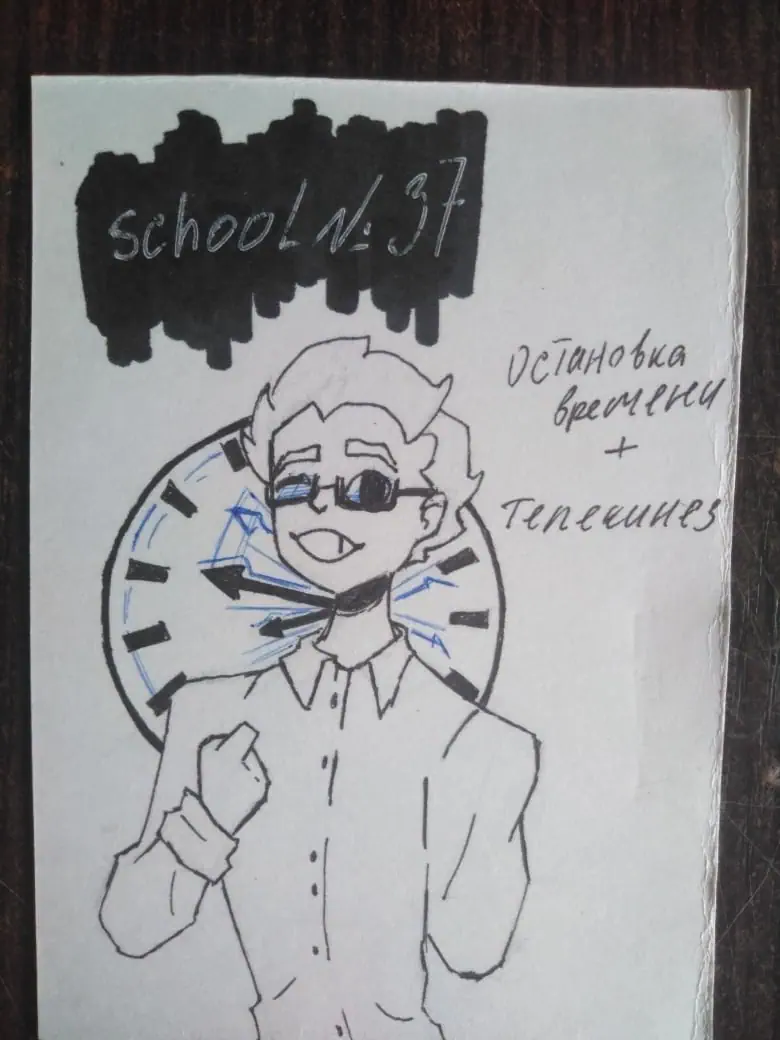 school №: 37
Остановка
времени
+
Телекинез